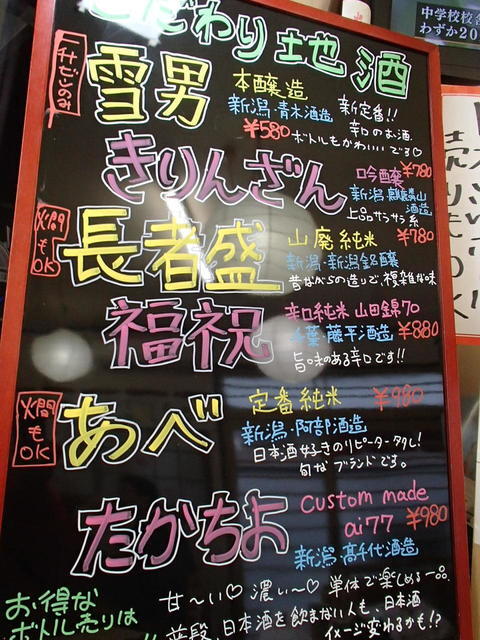 こだわり地酒
一升ごいのみ
雪男
本醸造
新潟・青木酒造
¥580
新定番!!
辛口のお酒
ボトルもかわいいです♡
きりんざん
吟醸 ¥780
新潟・麒麟山酒造
上品サラサラ系
燗もOK
長者盛
山廃純米 ¥780
新潟・新潟銘醸
昔ながらの造りで、複雑な味
福祝
辛口純米 山田錦70
千葉・藤平酒造 ¥880
旨味のある辛口です!!
燗もOK
あべ
定番純米 ¥980
新潟・阿部酒造
日本酒好きのリピーター多し!
旬なブランドです。
たかちよ
custom made
ai77 ¥980
新潟・高千代酒造
甘〜い♡ 濃い〜♡ 単体で楽しめる一品。
普段、日本酒を飲まない人も、日本酒
イメージ変わるかも!?
お得な
ボトル売りは
中学校校舎
わずか20